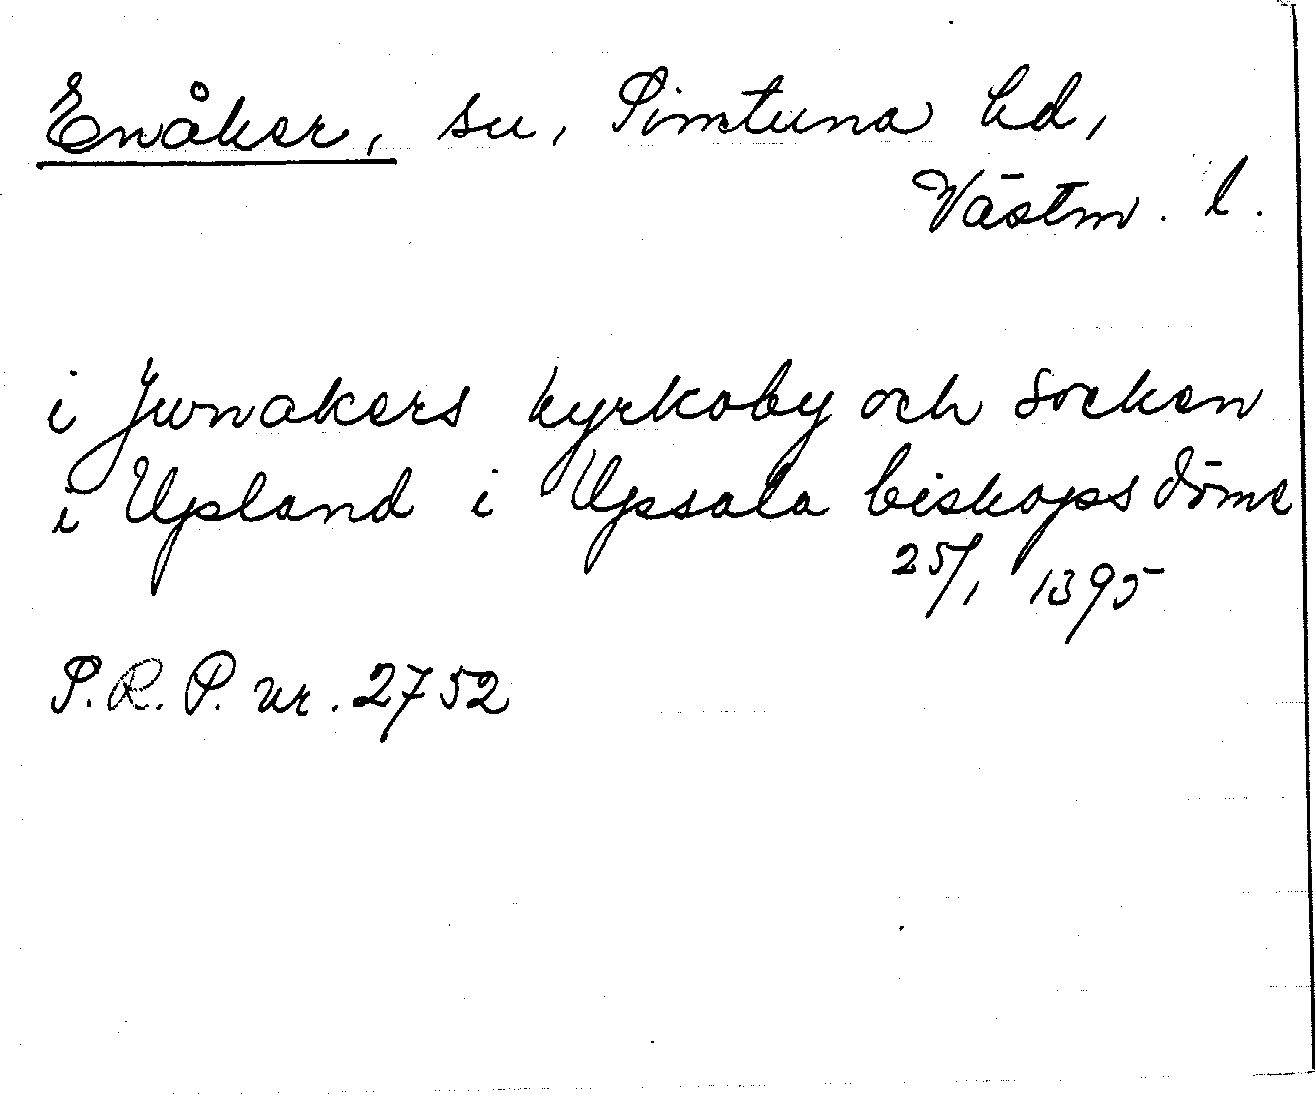 Enåker, sn, Simtuna hd,
Västm. l.
i Jwnakers kyrkoby och socken
i Upland i Upsala biskopsdöme
25/1 1395
S.R.P. nr. 2752